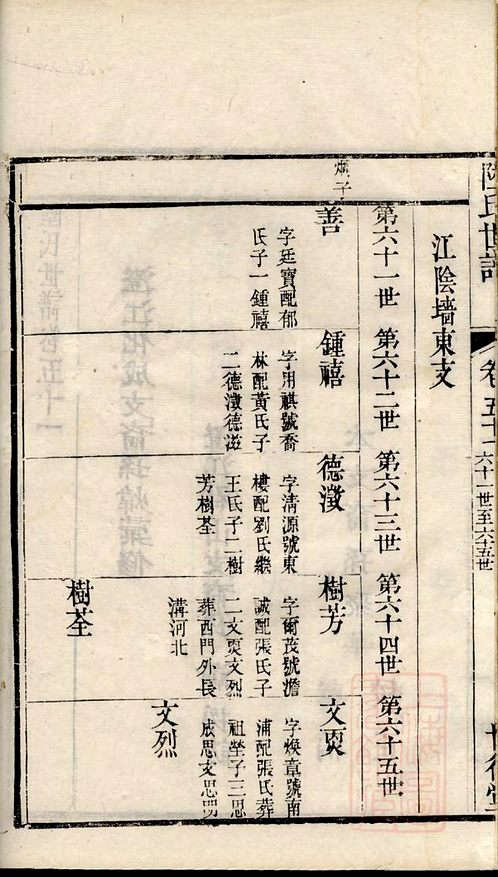 陸氏世譜
卷五十一
六十一世至六十五世
江陰墻東支
第六十一世
第六十二世
第六十三世
第六十四世
第六十五世
善
字廷寶配郁
氏子一鍾禧
鍾禧
字用祺號喬
林配黃氏子
二德澂德滋
德澂
字清源號東
樓配劉氏繼
王氏子二樹
芳樹荃
樹芳
字爾茂號澹
誠配張氏子
二文奭文烈
葬西門外長
溝河北
樹荃
文奭
字煥章號南
浦配張氏葬
祖塋子三思
成思文思明
文烈